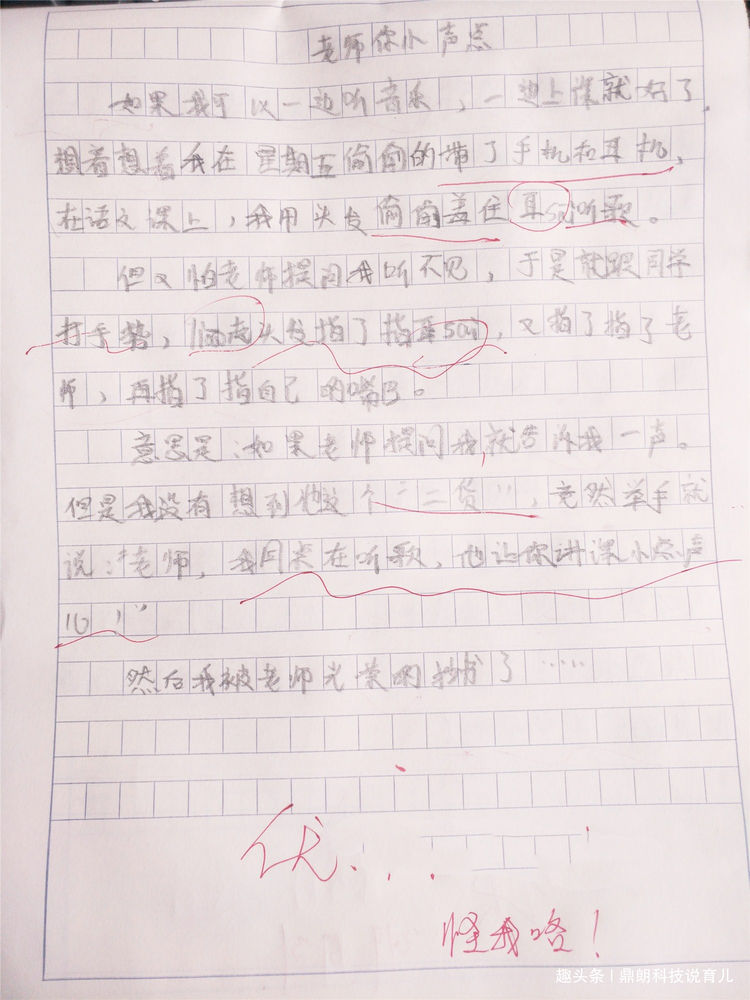 老师你小声点
如果我可以一边听音乐，一边上课就好了，
想着想着我在星期五偷偷的带了手机和耳机，
在语文课上，我用头发偷偷盖住耳sai听歌。
但又怕老师提问我听不见，于是就跟同学
打手势，头发指了指耳sai，又指了指了老
师，再指了指自己的嘴巴。
意思是：如果老师提问我，就告诉我一声。
但是我没有想到他这个“二货”，竟然举手就
说：“老师，我同桌在听歌，他让你讲课小点声
儿，”
然后我被老师光荣的了……
优...
怪我咯！
趣头条 | 鼎朗科技说育儿